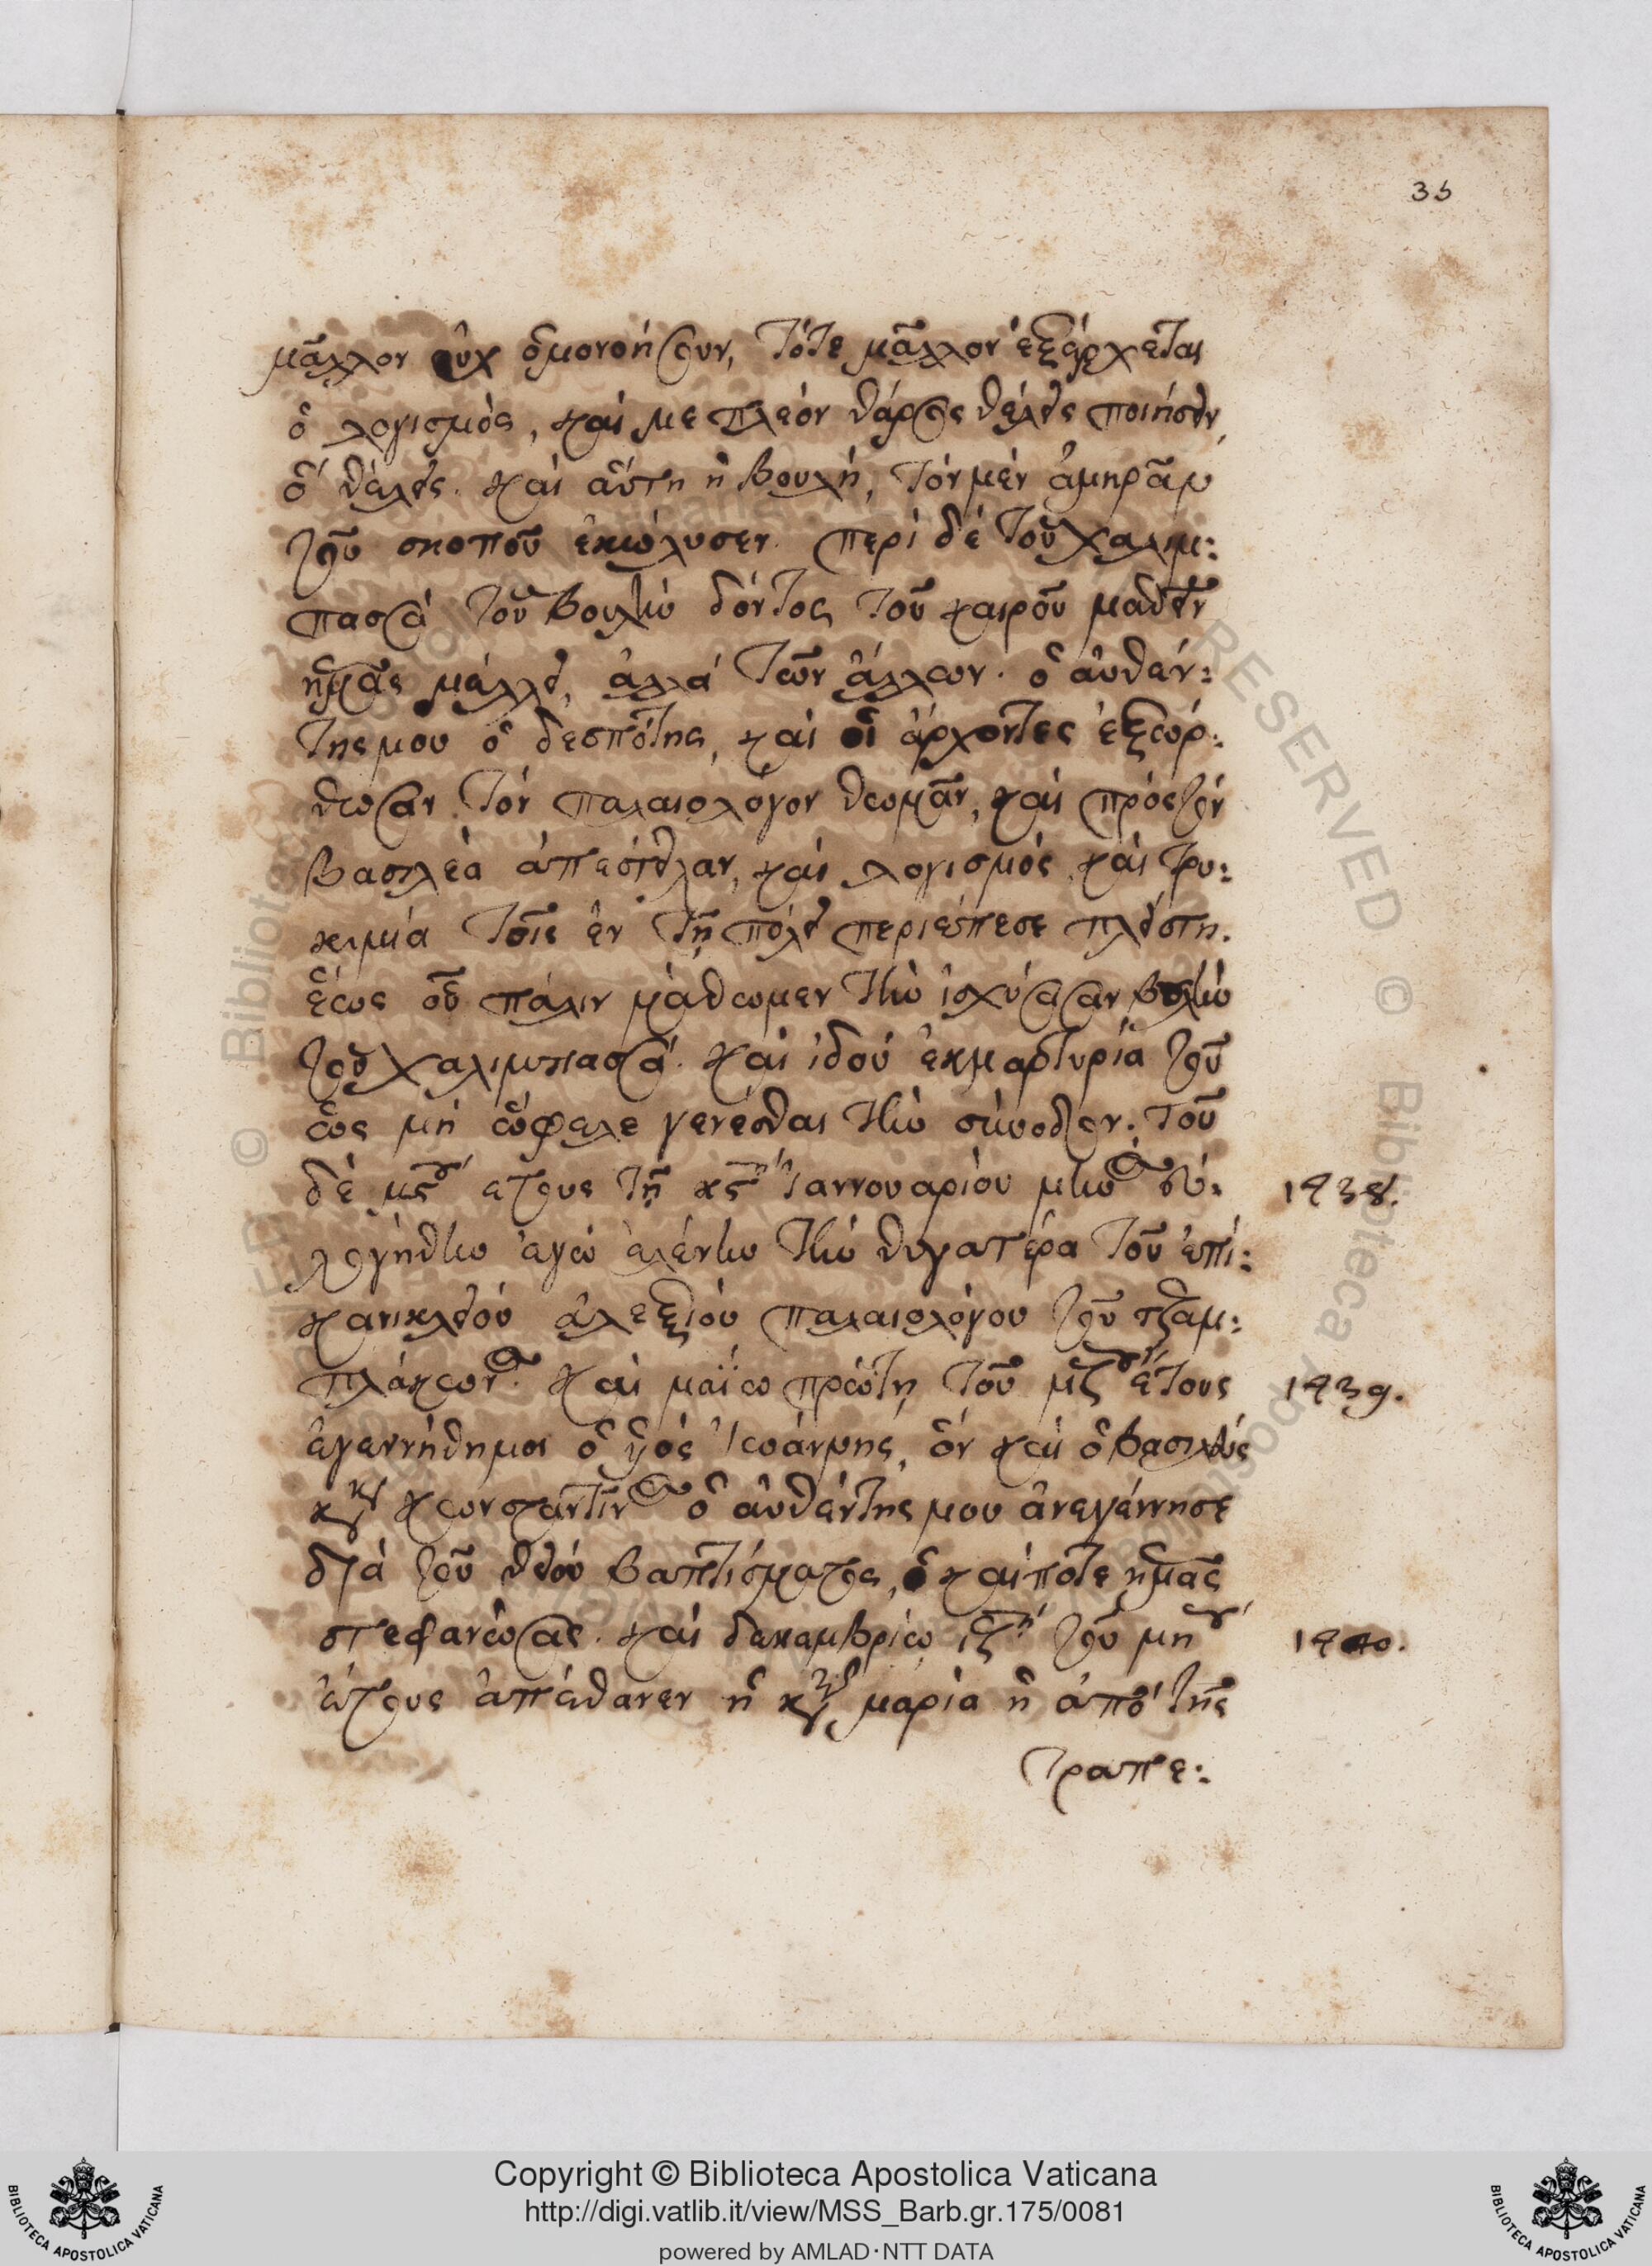 35
μᾶλλον οὐχ ὁμονοήσουν, Τότε μᾶλλον ἐξέρχεται
ὁ λογισμός, καὶ με πλέον θάρσος θέλεις ποιήσειν
ὃ θέλεις. καὶ αὕτη ἡ βουλὴ, τὸν μὲν ἀμηρᾶν
τοῦ σκοποῦ ἐκώλυσεν. περὶ δὲ τοῦ χαλιμ:
πασσᾶ τοῦ βουλὴν δόντος τοῦ καιροῦ μαθεῖν
ἡμᾶς μέλλει, ἀλλὰ τῶν ἄλλων. ὁ αὐθέν:
της μου ὁ δεσπότης, καὶ οἱ ἄρχοντες ἐξεώρ:
θωσαν τὸν παλαιολόγον θωμᾶν, καὶ πρὸς τὸν
βασιλέα ἀπέστειλαν, καὶ λογισμὸς καὶ τρυ:
κιμία τοῖς ἐν τῇ πόλει περιέπεσε πλείστη.
ἕως οὗ πάλιν μάθωμεν τὴν ἰσχύσασαν βουλὴν
τοῦ χαλιμπασσᾶ. καὶ ἰδοὺ ἐκμαρτυρία τοῦ
ὡς μὴ ὤφελε γενέσθαι τὴν σύνοδον. τοῦ
δὲ μςου ετους τῇ κςη Ἰαννουαρίου μηνὸς εὐ: 1438.
λογήθην ἐγὼ ἑλένην τὴν θυγατέρα τοῦ ἐπὶ:
κανικλείου ἀλεξίου παλαιολόγου τοῦ τζαμ:
πλάκωνος. καὶ μαΐω πρώτῃ τοῦ μζου ἔτους 1439.
ἐγεννήθη μοι ὁ ὑὸς Ἰωάννης, ὃν καὶ ὁ βασιλεὺς
κὺρ κωνσταντῖνος ὁ αὐθέντης μου ἀνεγέννησε
διὰ τοῦ θείου βαπτίσματος, ὁ καί ποτε ἡμᾶς
στεφανώσας. καὶ δεκεμβρίω ιζη τοῦ μηου 1440.
ἔτους ἀπέθανεν ἡ κυρὰ μαρία ἡ ἀπὸ τῆς
Τραπε:
Copyright © Biblioteca Apostolica Vaticana
http://digi.vatlib.it/view/MSS_Barb.gr.175/0081
powered by AMLAD·NTT DATA